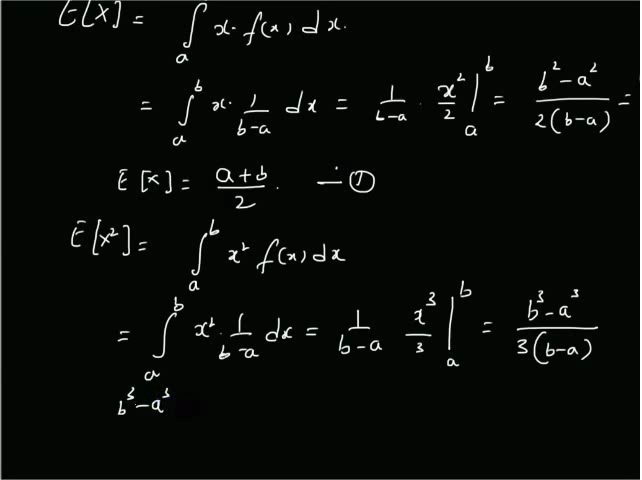 E[X] = ∫ₐ x · f(x) dx.
= ∫ₐᵇ x · 1/(b-a) dx = 1/(b-a) · x²/2 |ₐᵇ = (b² - a²)/(2(b-a)) =
E[X] = (a+b)/2. — ①
E[X²] = ∫ₐᵇ x² f(x) dx
= ∫ₐᵇ x² · 1/(b-a) dx = 1/(b-a) x³/3 |ₐᵇ = (b³ - a³)/(3(b-a))
b³ - a³